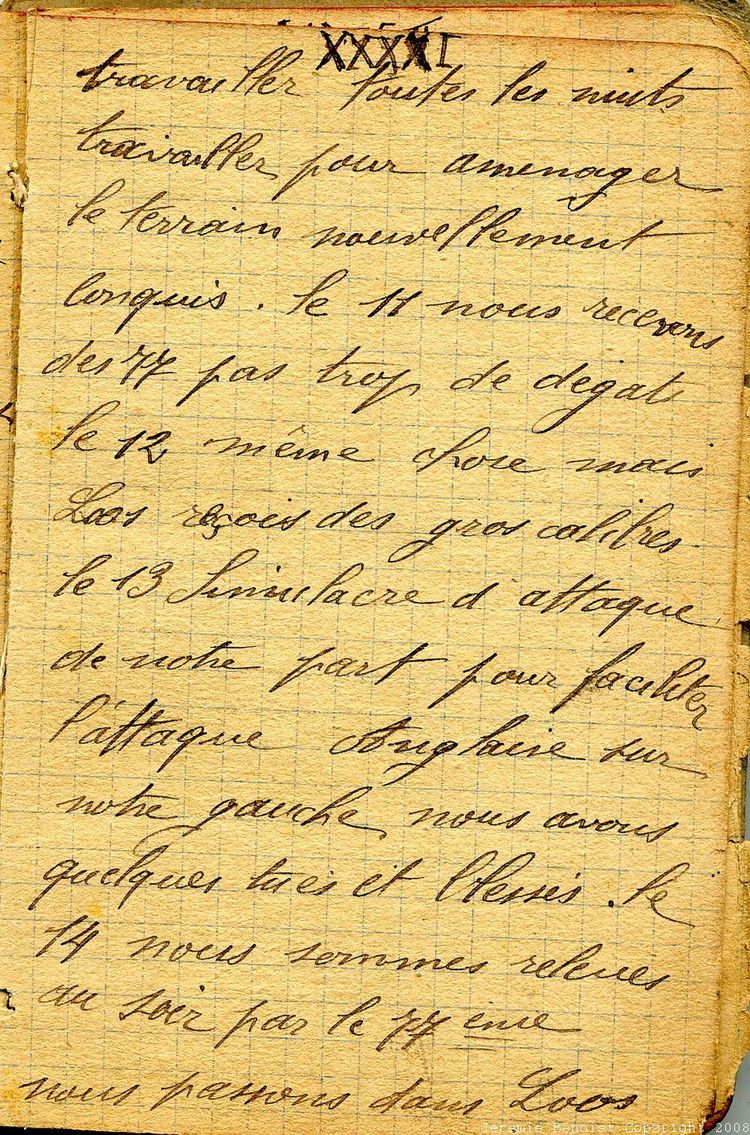 XXXXI
travailler toutes les nuits
travailler pour amenager
le terrain nouvellement
conquis. le 11 nous recevons
des 77 pas trop de dégats
le 12 même chose mais
Loos reçois des gros calibres
le 13 Simulacre d'attaque
de notre part pour faciliter
l'attaque Anglaise sur
notre gauche, nous avons
quelques tués et blessés. le
14 nous sommes relevés
au soir par le 77 eme
nous passons dans Loos
Jeremie Benoist Copyright 2008